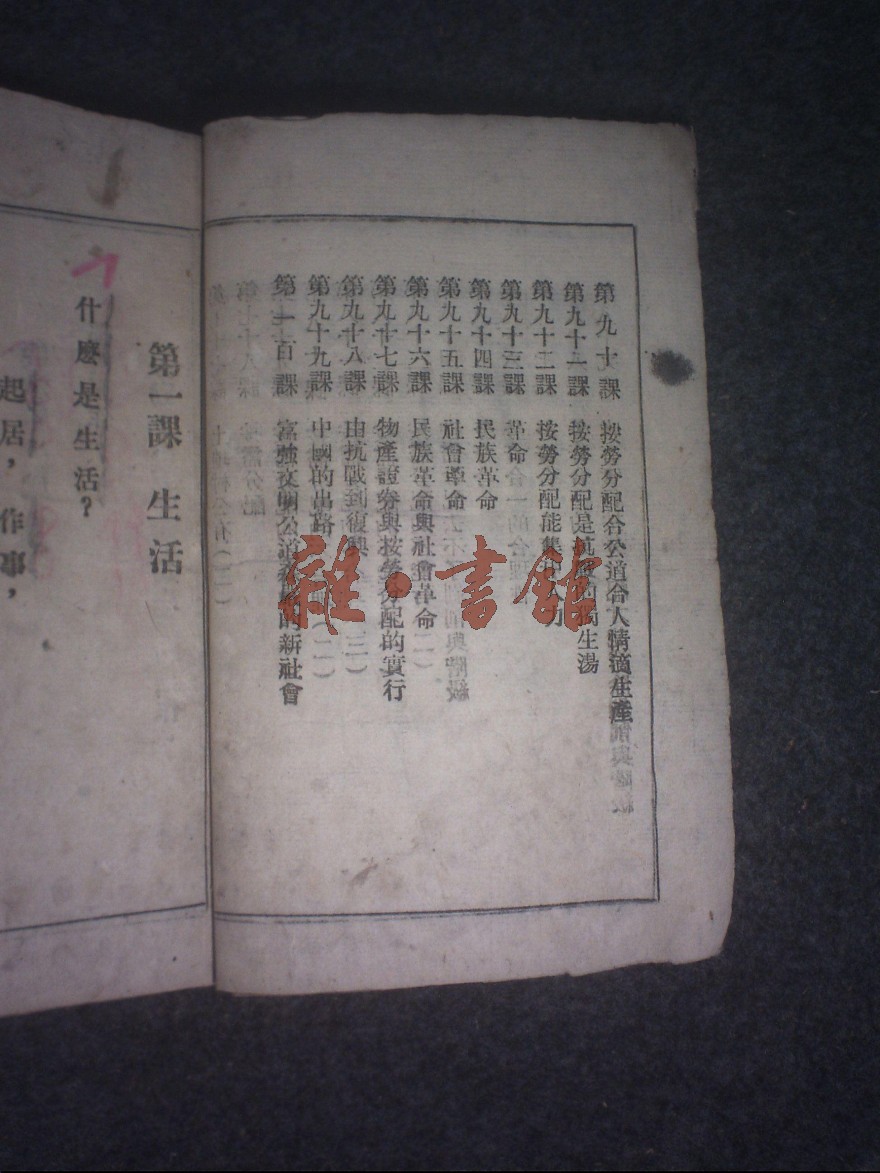 第九十課 按勞分配合公道合人情適生產
第九十一課 按勞分配是 生湯
第九十二課 按勞分配能集
第九十三課 革命
第九十四課 民族革命
第九十五課 社會革命
第九十六課 民族革命與社會革命
第九十七課 物產證券與按勞分配的實行
第九十八課 由抗戰到復興
第九十九課 中國的出路
第一百課 富強文明公道 的新社會
雜·書館
第一課 生活
什麼是生活？
起居，作事，